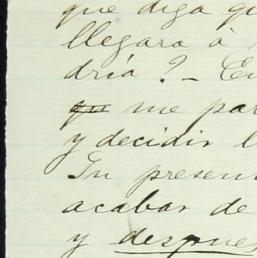 que diga qu
llegara à
dria? - En
que me par
y decidir l
Tu presen
acabar de
y despues